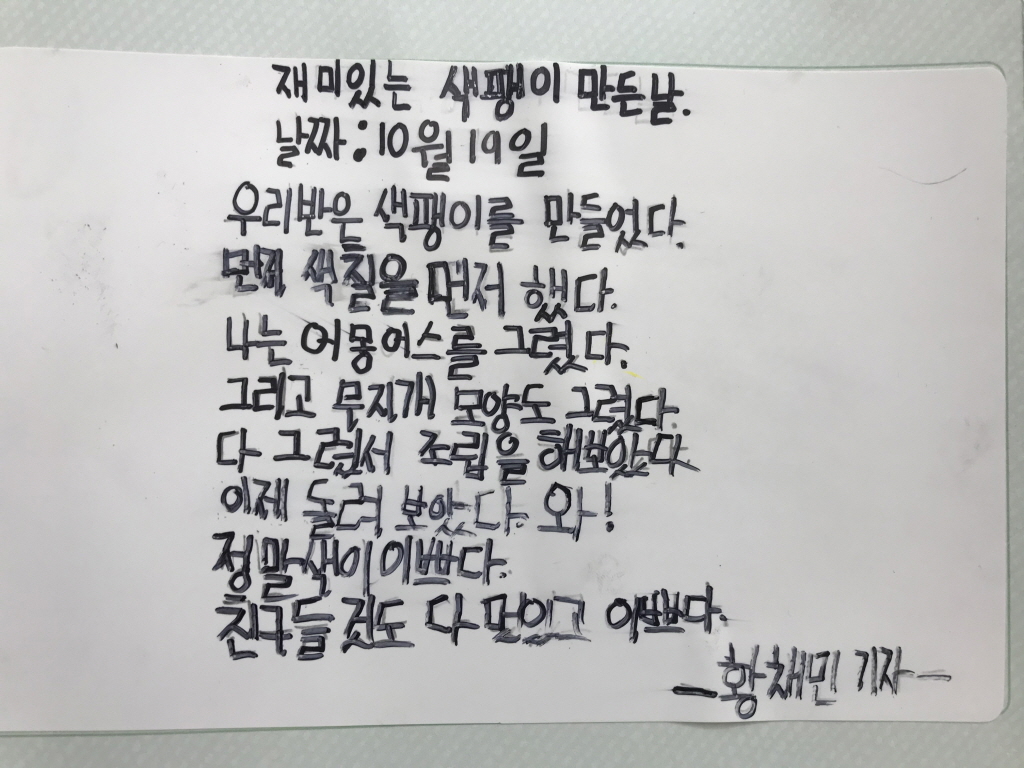 재미있는 색팽이 만든날.
날짜:10월 19일
우리반은 색팽이를 만들었다.
먼저 색칠을 먼저 했다.
나는 어몽어스를 그렸다.
그리고 무지개 모양도 그렸다.
다 그려서 조립을 해보았다
이제 돌려 보았다. 와!
정말색이 이쁘다.
친구들것도 다 멋이고 이쁘다.
-황채민 기자-